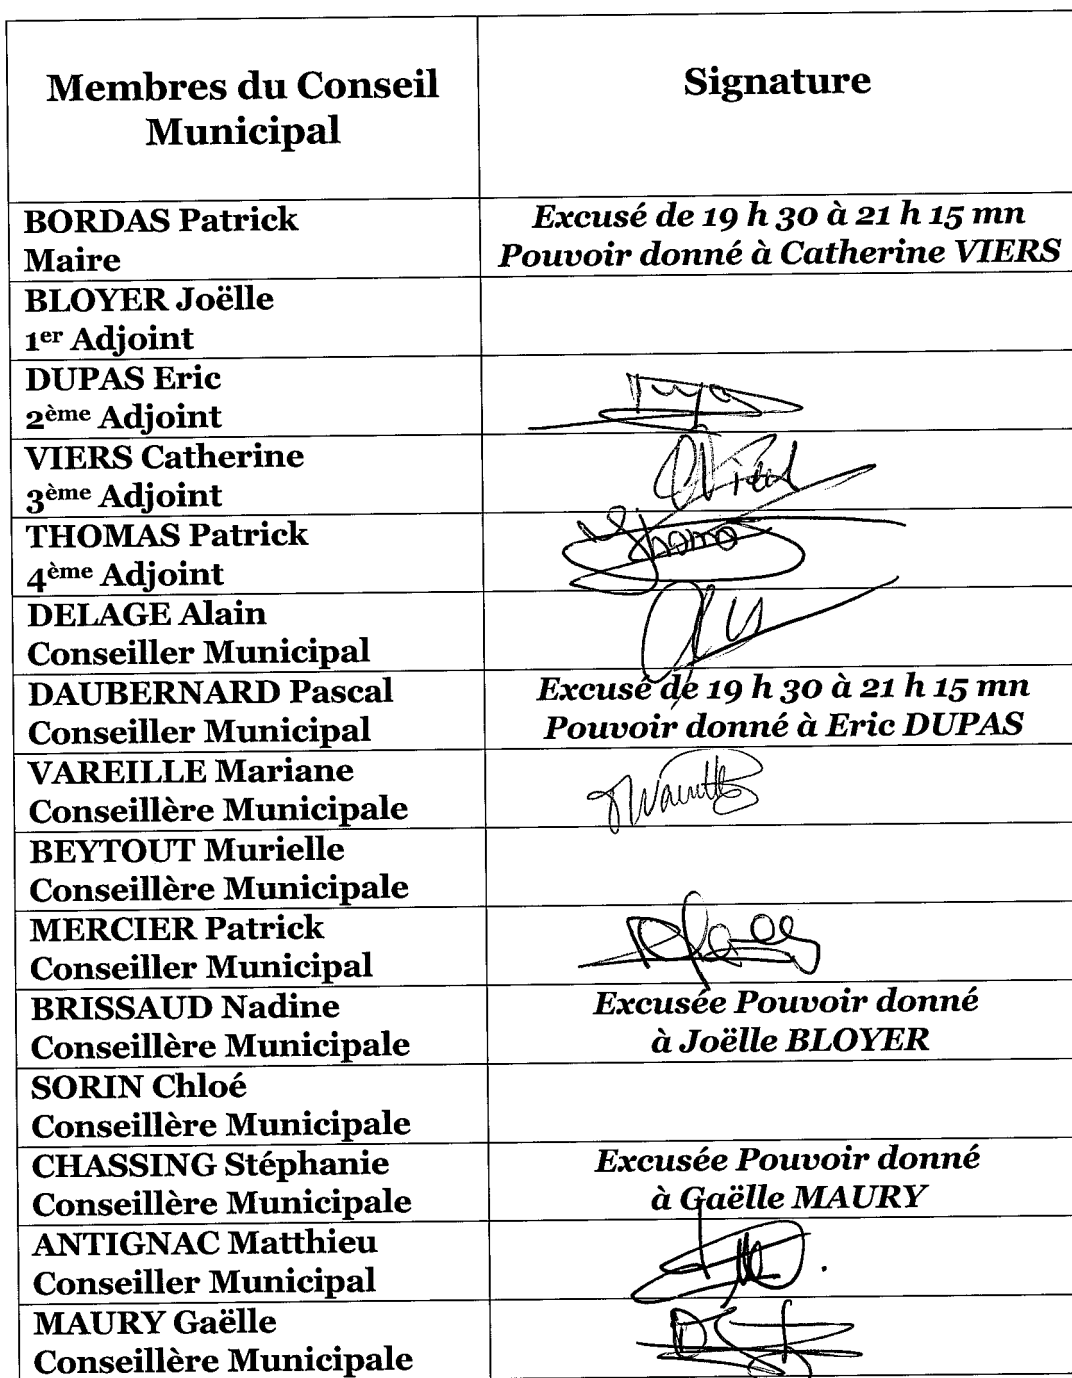 Membres du Conseil
Municipal
Signature
BORDAS Patrick
Maire
Excusé de 19 h 30 à 21 h 15 mn
Pouvoir donné à Catherine VIERS
BLOYER Joëlle
1er Adjoint
DUPAS Eric
2ème Adjoint
VIERS Catherine
3ème Adjoint
THOMAS Patrick
4ème Adjoint
DELAGE Alain
Conseiller Municipal
DAUBERNARD Pascal
Conseiller Municipal
Excusé de 19 h 30 à 21 h 15 mn
Pouvoir donné à Eric DUPAS
VAREILLE Mariane
Conseillère Municipale
BEYTOUT Murielle
Conseillère Municipale
MERCIER Patrick
Conseiller Municipal
BRISSAUD Nadine
Conseillère Municipale
Excusée Pouvoir donné
à Joëlle BLOYER
SORIN Chloé
Conseillère Municipale
CHASSING Stéphanie
Conseillère Municipale
Excusée Pouvoir donné
à Gaëlle MAURY
ANTIGNAC Matthieu
Conseiller Municipal
MAURY Gaëlle
Conseillère Municipale